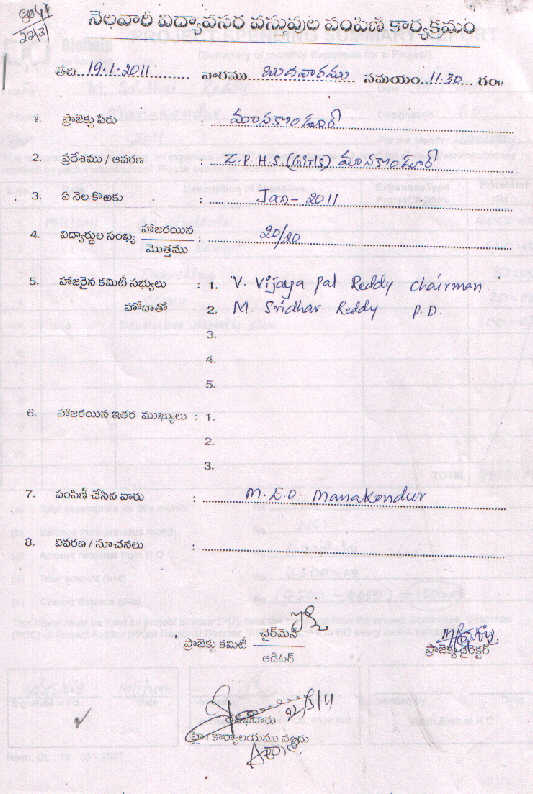 నెలవారి విద్యావసర వస్తువుల పంపిణి కార్యక్రమం
తేది 19.1.2011 వారము బుధవారము సమయం 11.30 గం.
1. ప్రాజెక్టు పేరు : మానకొండూర్
2. ప్రదేశము / ఆవరణ : Z.P.H.S (Girls) మానకొండూర్
3. ఏ నెల కొఱకు : Jan - 2011
4. విద్యార్థుల సంఖ్య హాజరయిన : 20/20
మొత్తము
5. హాజరైన కమిటీ సభ్యులు : 1. V. Vijaya Pal Reddy Chairman
హోదాతో 2. M Sridhar Reddy P.D.
3.
4.
5.
6. హాజరయిన ఇతర ముఖ్యులు : 1.
2.
3.
7. పంపిణీ చేసిన వారు : M.E.O Manakondur
8. వివరణ / సూచనలు :
ప్రాజెక్టు కమిటీ చైర్‌మెన్
ఆడిటర్
ప్రాజెక్టు డైరెక్టర్